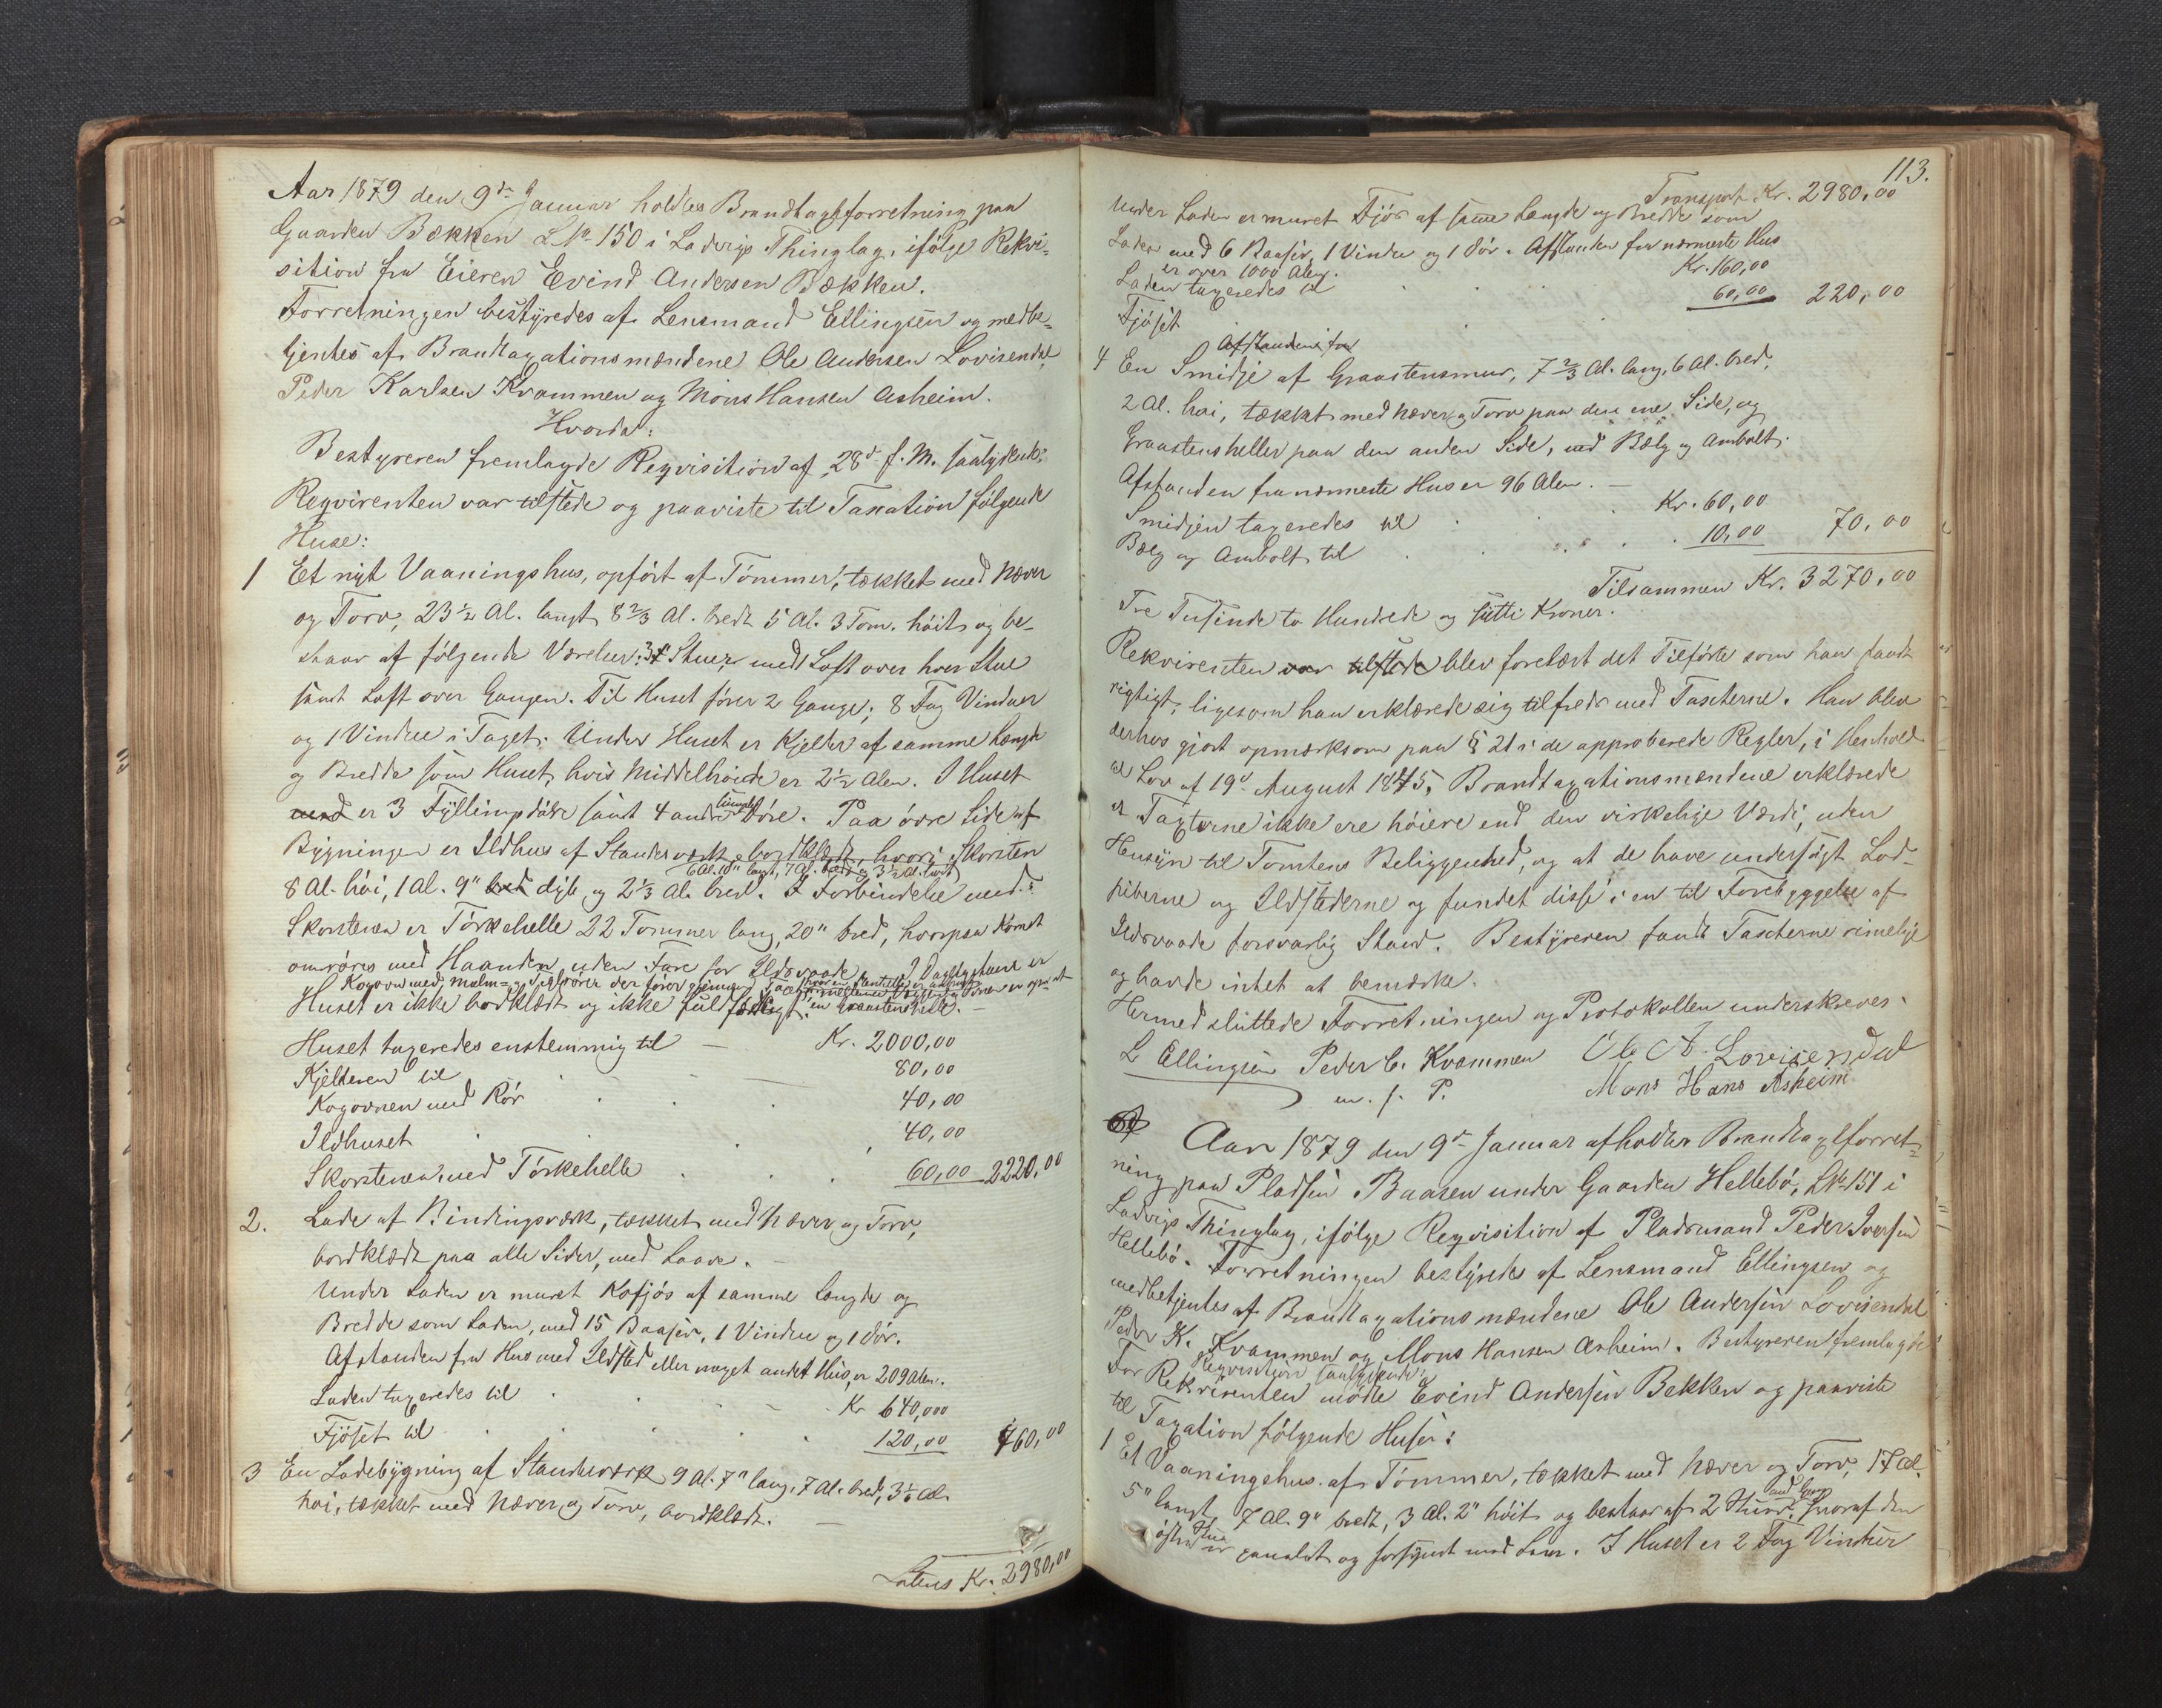 Aar 1879 den 9de Januar holdtes Brandtagtforretning paa
Gaarden Bækken LNo 150 i Ladvigs Thinglag, ifølge Rekvi=
sition fra Eieren Evind Andersen Bækken.
Forretningen bestyredes af Lensmand Ellingsen og medbe=
tjentes af Brandtaxationsmændene Ole Andersen Lovisendal,
Peder Karlsen Kvammen og Mons Hansen Asheim.
Hvorda:
Bestyreren fremlagde Reqvisition af 28de f. M. saalydende:
Reqvirenten var tilstede og paaviste til Taxation følgende
Huse:
1 Et nyt Vaaningshus, opført af Tømmer, tækket med Næver
og Torv, 23 1/2 Al. langt 8 2/3 Al. bredt 5 Al. 3 Tom. høit og be-
staar af følgende Værelser: 3 Stuer med Loft over hver Stue
samt Loft over Gangen. Til Huset fører 2 Gange; 8 Fag Vinduer
og 1 Vindue i Taget. Under Huset er Kjelder af samme Længde
og Bredde som Huset, hvis Middelhøide er 2 1/2 Alen. I Huset
med er 3 Fyllingsdøre samt 4 andre simple Døre. Paa øvre Side af
Bygningen er Ildhus af Standerværk, bordklædt, hvori Skorsten
6 Al. 10" langt, 7 Al. bredt og 3 1/2 Al. høit
8 Al. høi, 1 Al. 9" dyb og 2 1/3 Al. bred. I Forbindelse med
Skorstenen er Tørkehelle 22 Tommer lang, 20" bred, hvorpaa Kornet
omrøres med Haanden uden Fare for Ildsvaade. I Dagligstuen er
Kogovn med Malm= og Teglrører der fører gjennem Taget
Huset er ikke bordklædt og ikke fuldfærdigt.
Huset taxeredes enstemmig til — Kr. 2000,00
Kjelderen til 80,00
Kogovnen med Rør 40,00
Ildhuset 40,00
Skorstenen med Tørkehelle 60,00 2220,00
2. Lade af Bindingsværk, tækket med Næver og Torv,
bordklædt paa alle Sider, med Laave.
Under Laden er muret Kofjøs af samme Længde og
Bredde som Laden, med 15 Baaser, 1 Vindue og 1 Dør.
Afstanden fra Hus med Ildsted eller noget andet Hus, er 209 Alen.
Laden taxeredes til Kr 640,00
Fjøset til 120,00 760,00
3 En Ladebygning af Standerværk 9 Al. 7" lang, 7 Al. bred, 3 1/6 Al.
høi, tækket med Næver og Torv, bordklædt.
Latus Kr. 2980,00
113.
Transport Kr. 2980,00
Under Laden er muret Fjøs af samme Længde og Bredde som
Laden med 6 Baaser, 1 Vindue og 1 Dør. Afstanden fra nærmeste Hus
er over 1000 Alen.
Laden taxeredes til Kr. 160,00
Fjøset 60,00 220,00
Afstanden fra
4 En Smidje af Graastensmur, 7 2/3 Al. lang, 6 Al. bred,
2 Al. høi, tækket med Næver og Torv paa den ene Side, og
Graastensheller paa den anden Side, med Bælg og Ambolt.
Afstanden fra nærmeste Hus er 96 Alen.
Smidjen taxeredes til Kr. 60,00
Bælg og Ambolt til 10,00 70,00
Tilsammen Kr. 3270,00
Tre Tusinde to Hundrede og sytti Kroner.
Rekvirenten var tilstede blev forelæst det Tilførte som han fandt
rigtigt, ligesom han erklærede sig tilfreds med Taxterne. Han blev
derhos gjort opmærksom paa § 21 i de approberede Regler, i Henhold
til Lov af 19de August 1845. Brandtaxationsmændene erklærede
at Taxterne ikke ere høiere end den virkelige Værdi, uden
Hensyn til Tomtens Beliggenhed, og at de have undersøgt Lod-
piberne og Ildstederne og fundet disse i en til Forebyggelse af
Ildsvaade forsvarlig Stand. Bestyreren fandt Taxterne rimelige
og havde intet at bemærke.
Hermed sluttede Forretningen og Protokollen underskreves.
L Ellingsen Peder C. Kvammen Ole A. Lovisendal
m. f. P. Mons Hans Asheim
Aar 1879 den 9de Januar afholdtes Brandtaxtforret=
ning paa Pladsen Baasen under Gaarden Hellebø, LNo 151 i
Ladvigs Thinglag, ifølge Reqvisition af Pladsmand Peder Iversen
Hellebø. Forretningen bestyredes af Lensmand Ellingsen og
medbetjentes af Brandtaxationsmændene Ole Andersen Lovisendal
Peder K. Kvammen og Mons Hansen Asheim. Bestyreren fremlagde
Reqvisition saalydende:
For Rekvirenten mødte Evind Andersen Bekken og paaviste
til Taxation følgende Huse:
1 Et Vaaningshus af Tømmer, tækket med Næver og Torv, 17 Al.
5" langt, 7 Al. 9" bredt, 3 Al. 2" høit og bestaar af 2 Stuer hvoraf den
østre Stue er panelet og forsynet med Lem. I Huset er 2 Fag Vinduer